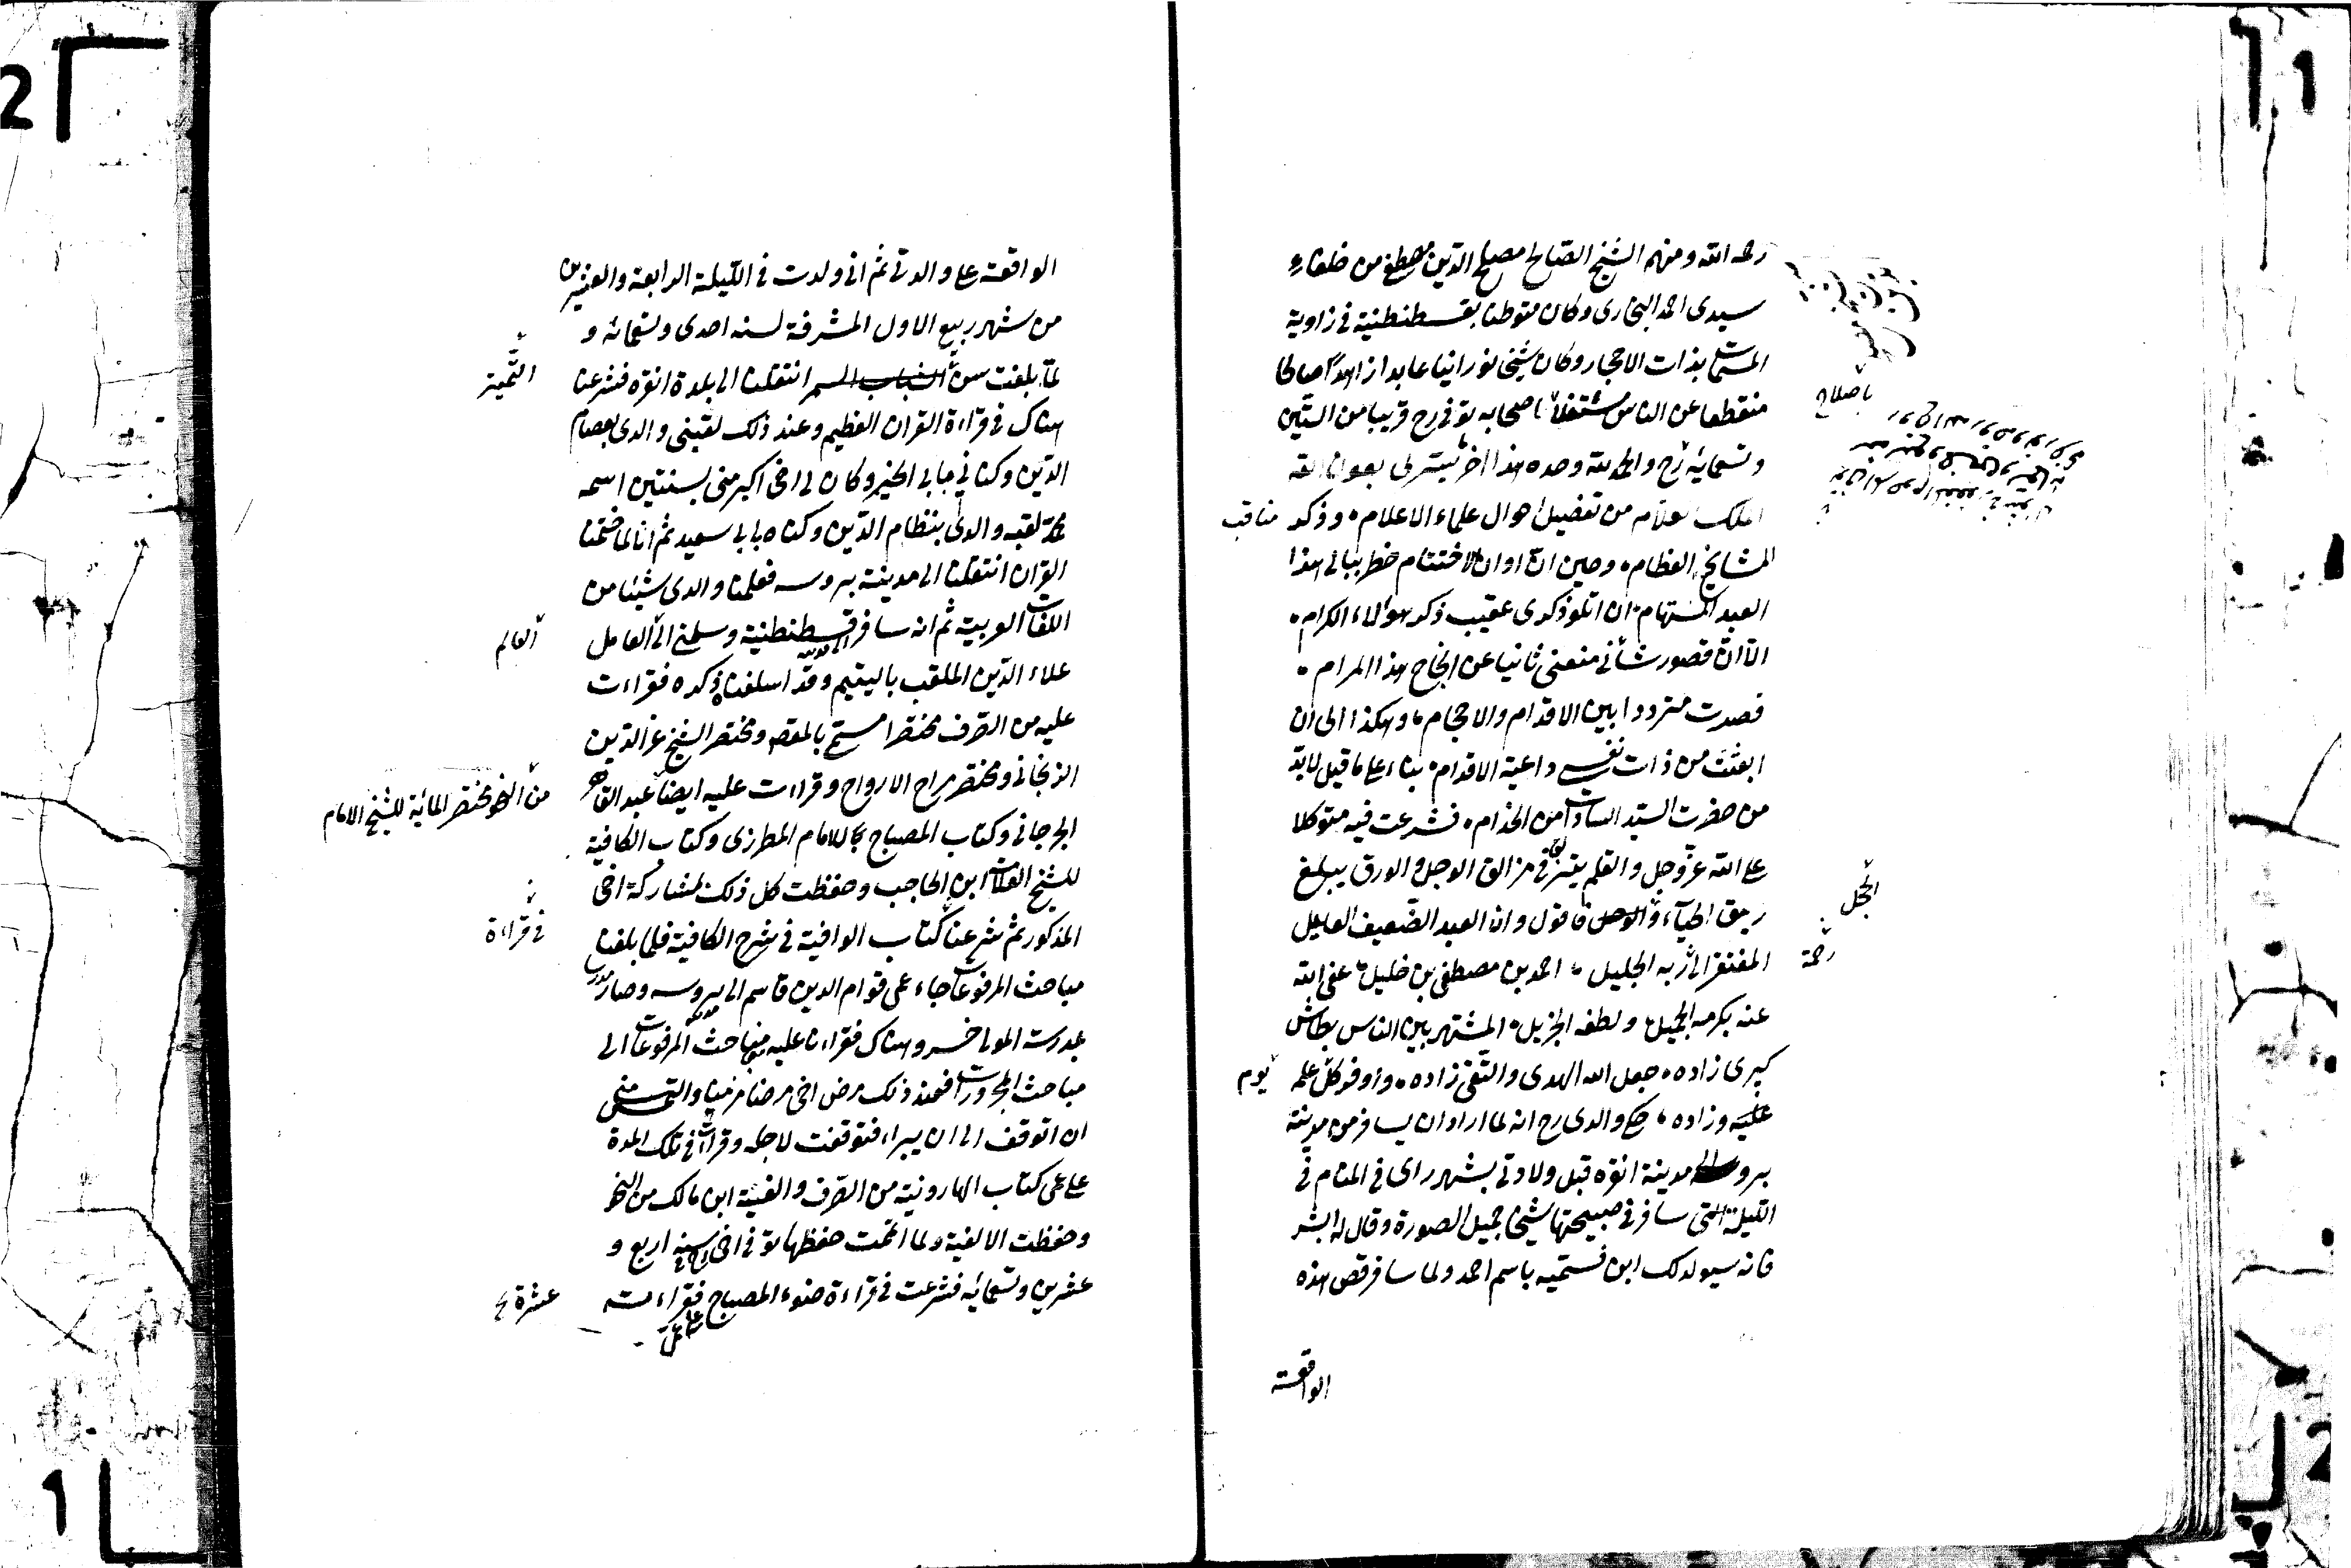 رحمه الله ومنهم الشيخ الصالح مصلح الدين مصطفى من خلفاء
سيدى احمد البخارى وكان متوطنا بقسطنطنية فى زاوية
المسماة بذات الاحجار وكان شيخا نورانيا عابدا زاهدا صالحا
منقطعا عن الناس مشتغلا باصلاح اصحابه توفى رح قريبا من الستين
وتسعمائة رح والحمد لله وحده هذا آخر ما تيسر لى بعون الله
الملك العلام من تفضيل احوال علماء الاعلام وذكر مناقب
المشايخ العظام وحين ان اوان الاختتام خطر ببالى هذا
العبد المستهام ان اتلو ذكرى عقيب ذكر هؤلاء الكرام
الا ان قصور شأنى منعنى ثانيا عن انجاح هذا المرام
فصرت مترددا بين الاقدام والاحجام وهكذا الى ان
ابعثت من ذات نفسى داعية الاقدام بناء على ما قيل لا بد
من حضرت السيد السادات من الخدام فشرعت فيه متوكلا
على الله عز وجل والقلم يتزلق فى مزالق الوجل والورق يبلغ
ريق الحياء والخجل فاقول وانا العبد الضعيف العليل
المفتقر الى رحمة ربه الجليل احمد بن مصطفى بن خليل عفى الله
عنه بكرمه الجميل ولطفه الجزيل المشتهر بين الناس بطاش
كبرى زاده جعل الله الهدى والتقى زاده واوفر كل يوم علمه
عليه وزاده حكى والدى رح انه لما اراد ان يسافر من مدينة
بروسه الى مدينة انقره قبل ولادتى بشهر راى فى المنام فى
الليلة التى سافر فى صبيحتها شيخا جميل الصورة وقال له ابشر
فانه سيولد لك ابن فسميه باسم احمد ولما سافر قص هذه
الواقعة
الواقعة على والدتى ثم انى ولدت فى الليلة الرابعة والعشرين
من شهر ربيع الاول المشرفة لسنه احدى وتسعمائه و
لما بلغت سن التميز انتقلنا الى بلدة انقره فشرعنا
هناك فى قراءة القران العظيم وعند ذلك لقبنى والدى بعصام
الدين وكنانى بابى الخير وكان لى اخ اكبر منى بسنتين اسمه
محمد لقبه والدى بنظام الدين وكناه بابى سعيد ثم انا لما ختمنا
القران انتقلنا الى مدينة بروسه فعلمنا والدى شيئا من
اللغات العربية ثم انه سافر الى مدينة قسطنطنية وسلمنى الى العالم العامل
علاء الدين الملقب باليتيم وقد اسلفنا ذكره فقراءت
عليه من الصرف مختصرا مسمى بالمقصود ومختصر الشيخ عز الدين
الزنجانى ومختصر مراح الارواح وقراءت عليه ايضا من النحو مختصر المائة للشيخ الامام عبد القاهر
الجرجانى وكتاب المصباح للامام المطرزى وكتاب الكافية
للشيخ العلامة ابن الحاجب وحفظت كل ذلك بمشاركة اخى
المذكور ثم شرعنا فى قراءة كتاب الوافية فى شرح الكافية فلما بلغنا
مباحث المرفوعات جاء عمى قوام الدين قاسم الى بروسه وصار مدرسا
بمدرسة المولى خسرو هناك فقراءنا عليه مباحث المرفوعات الى
مباحث المجرورات فعند ذلك مرض اخى مرضا مزمنا والتمس منى
ان اتوقف الى ان يبراء فتوقفت لاجله وقراءت فى تلك المدة
على عمى كتاب الهارونية من الصرف والفية ابن مالك من النحو
وحفظت الالفية ولما اتممت حفظها توفى اخى سنه اربع و
عشرة وتسعمائه فشرعت فى قراءة ضوء المصباح فقراءت
على عمى